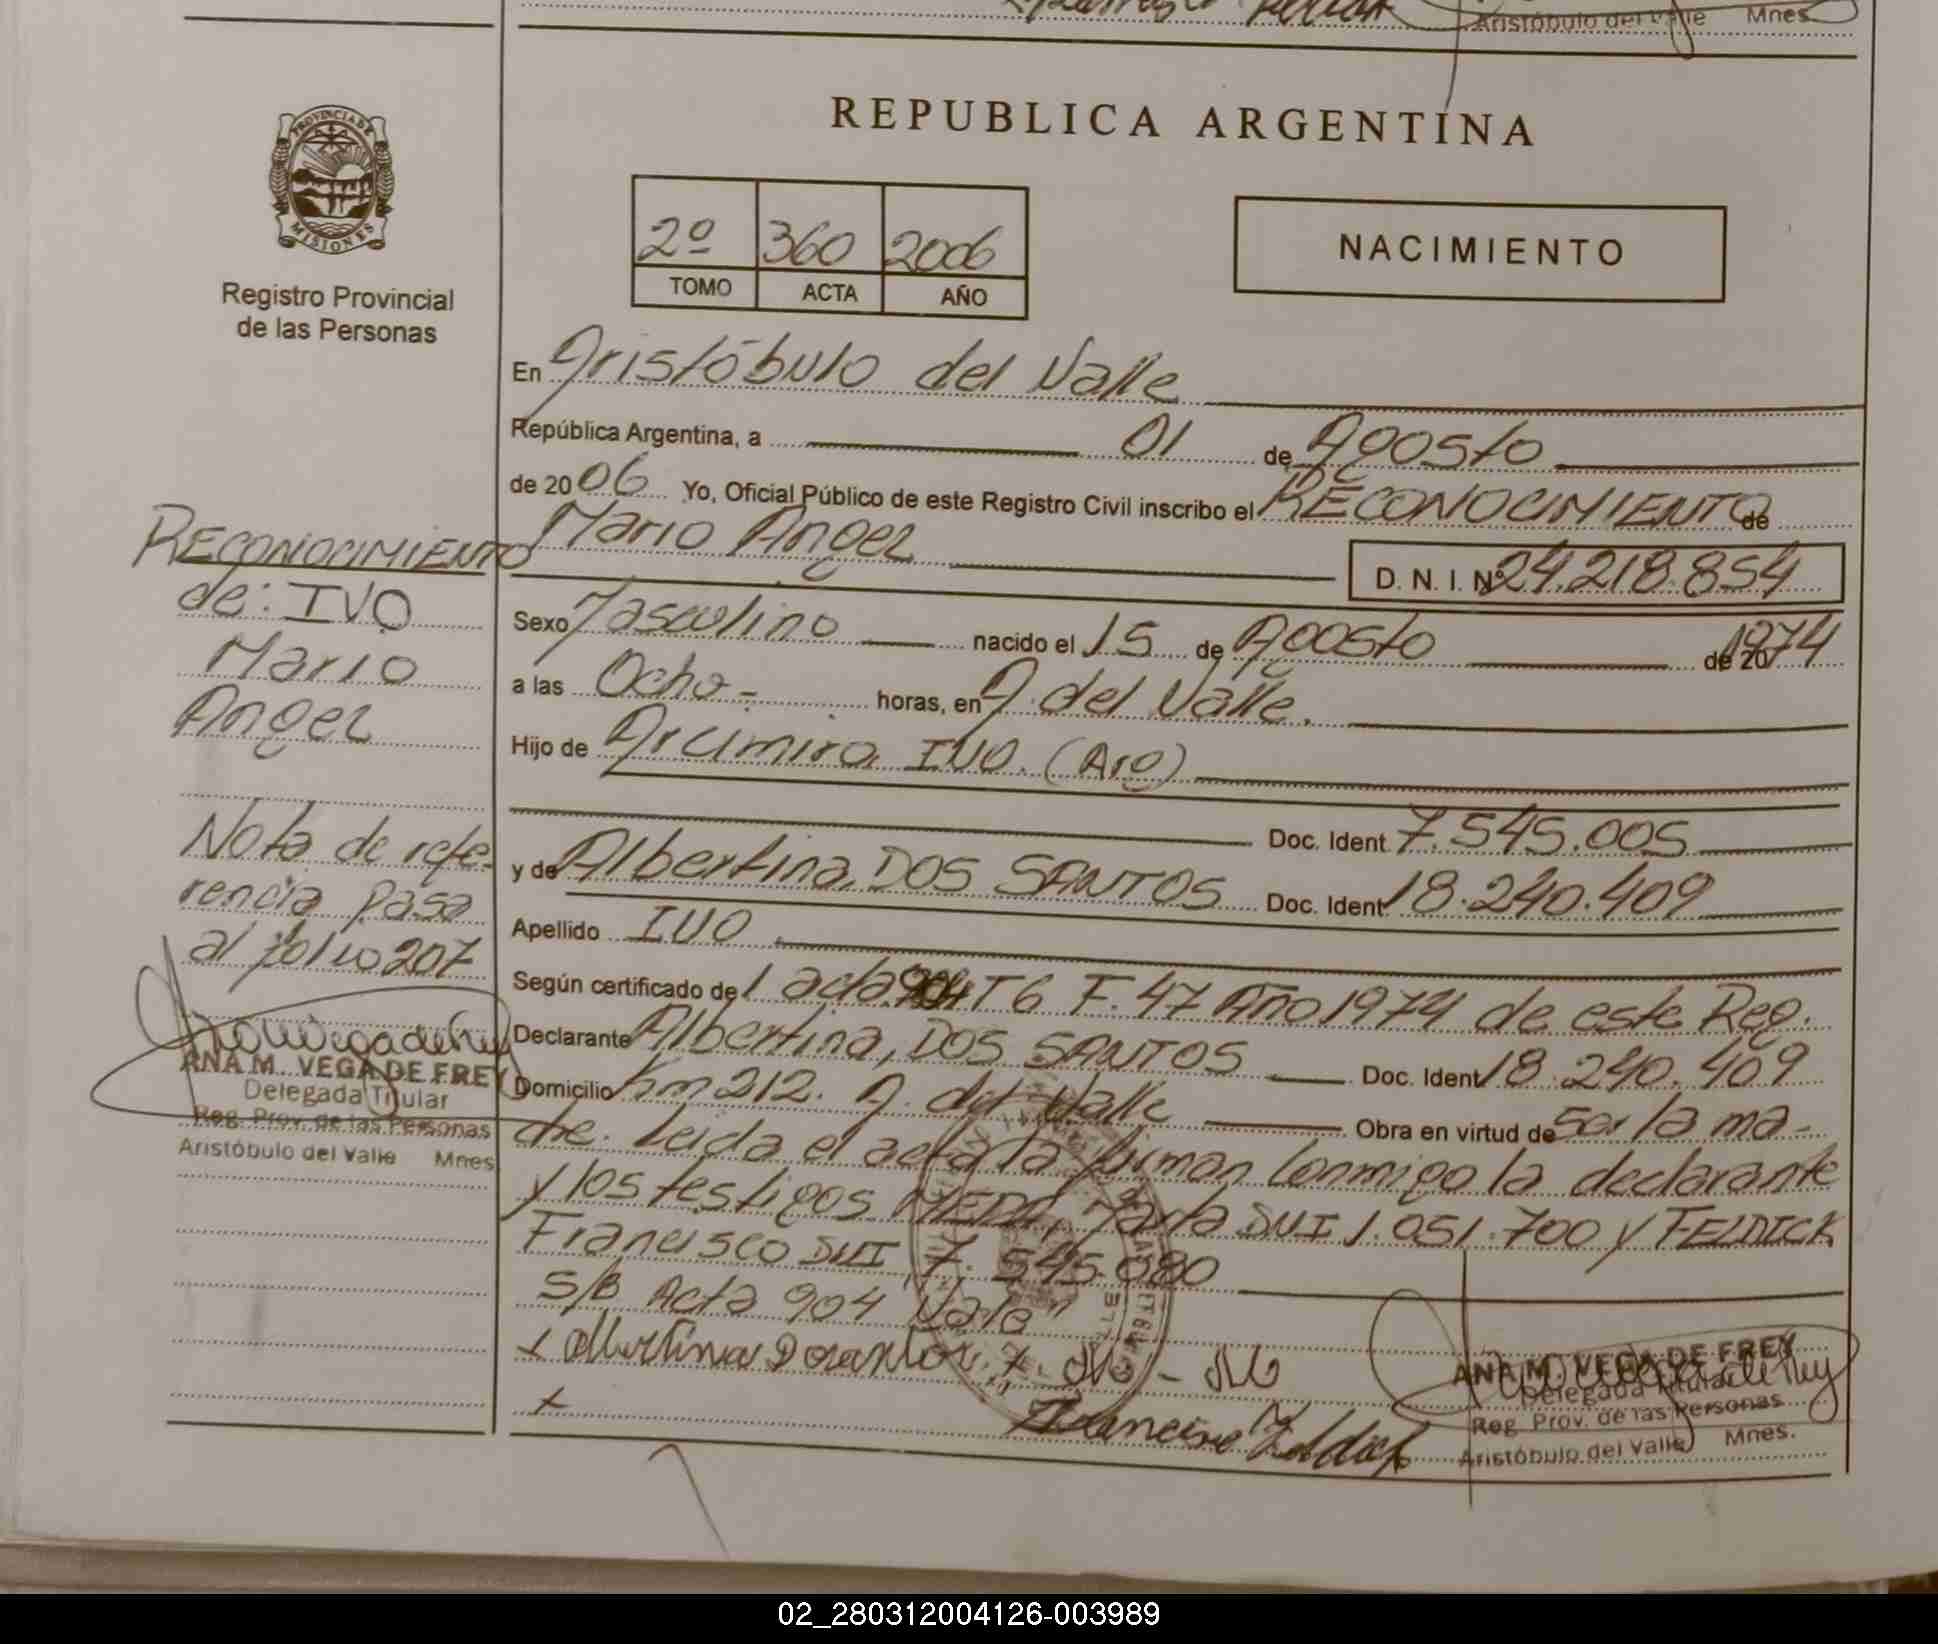 Aristóbulo del Valle Mnes.
REPUBLICA ARGENTINA
PROVINCIA DE
MISIONES
Registro Provincial
de las Personas
2º 360 2006
TOMO ACTA AÑO
NACIMIENTO
En Aristóbulo del Valle
República Argentina, a 01 de Agosto
de 2006 Yo, Oficial Público de este Registro Civil inscribo el RECONOCIMIENTO de
Mario Angel D. N. I. Nº 24.218.854
Sexo Masculino nacido el 15 de Agosto de 20 1974
a las Ocho - horas, en A. del Valle.
Hijo de Arcimiro IVO. (Arg)
Doc. Ident. 7.545.005
y de Albertina, DOS SANTOS Doc. Ident. 18.240.409
Apellido IVO
Según certificado de l acta 904 T6 F. 47 Año 1974 de este Reg.
Declarante Albertina, DOS SANTOS Doc. Ident. 18.240.409
Domicilio Km 212. A. del Valle Obra en virtud de ser la ma-
dre. Leida el acta la firman conmigo la declarante
y los testigos MEDA, Marta DNI 1.051.700 y FELDICK
Francisco DNI 7.545.080
S/B Acta 904 "Vale"
RECONOCIMIENTO
de: IVO
Mario
Angel
Nota de refe-
rencia pasa
al folio 207
ANA M. VEGA DE FREY
Delegada Titular
Reg. Prov. de las Personas
Aristóbulo del Valle Mnes
ANA M. VEGA DE FREY
Delegada Titular
Reg. Prov. de las Personas
Aristóbulo del Valle Mnes.
02_280312004126-003989